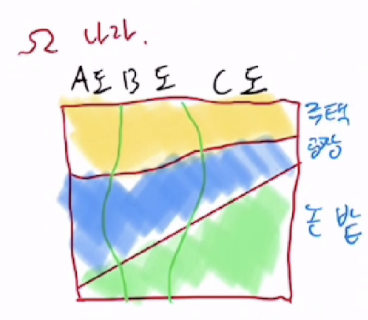 Ω 나라.
A도 B 도 C 도
주택
공장
논 밭